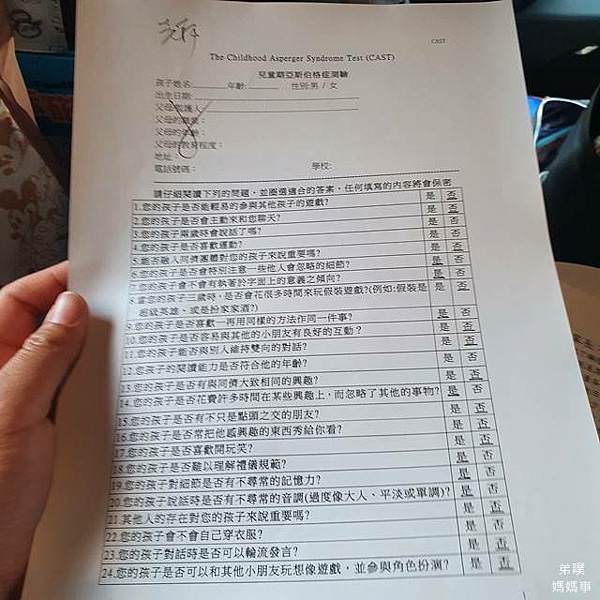 CAST
The Childhood Asperger Syndrome Test (CAST)
兒童期亞斯伯格症測驗
孩子姓名: 年齡: 性別:男 / 女
出生日期:
父母/監護人:
父母的職業:
父母的年齡:
父母的教育程度:
地址:
電話號碼: 學校:
請仔細閱讀下列的問題,並圈選適合的答案,任何填寫的內容將會保密
1.您的孩子是否能輕易的參與其他孩子的遊戲? 是 否
2.您的孩子是否會主動來和您聊天? 是 否
3.您的孩子兩歲時會說話了嗎? 是 否
4.您的孩子是否喜歡運動? 是 否
5.能否融入同儕團體對您的孩子來說重要嗎? 是 否
6.您的孩子是否會特別注意一些他人會忽略的細節? 是 否
7.您的孩子會不會有執著於字面上的意義之傾向? 是 否
8.當您的孩子三歲時,是否會花很多時間來玩假裝遊戲?(例如:假裝是 是 否
超級英雄,或是扮家家酒?)
9.您的孩子是否喜歡一再用同樣的方法作同一件事? 是 否
10.您的孩子是否容易與其他的小朋友有良好的互動? 是 否
11.您的孩子能否與別人維持雙向的對話? 是 否
12.您的孩子的閱讀能力是否符合他的年齡? 是 否
13.您的孩子是否有與同儕大致相同的興趣? 是 否
14.您的孩子是否花費許多時間在某些興趣上,而忽略了其他的事物? 是 否
15.您的孩子是否有不只是點頭之交的朋友? 是 否
16.您的孩子是否常把他感興趣的東西秀給你看? 是 否
17.您的孩子是否喜歡開玩笑? 是 否
18.您的孩子是否難以理解禮儀規範? 是 否
19.您的孩子對細節是否有不尋常的記憶力? 是 否
20.您的孩子說話時是否有不尋常的音調(過度像大人、平淡或單調)? 是 否
21.其他人的存在對您的孩子來說重要嗎? 是 否
22.您的孩子會不會自己穿衣服? 是 否
23.您的孩子對話時是否可以輪流發言? 是 否
24.您的孩子是否可以和其他小朋友玩想像遊戲,並參與角色扮演? 是 否
弟噗
媽媽事